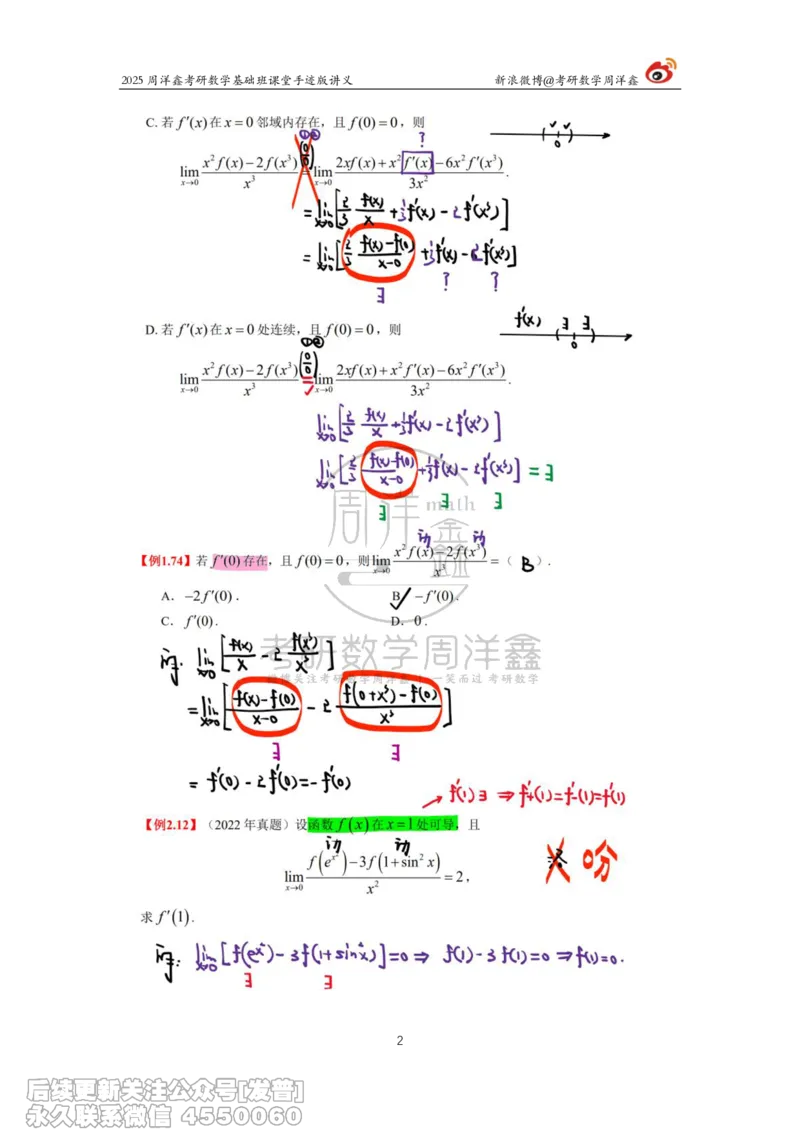 2025 周洋鑫考研数学基础班课堂手迹版讲义 新浪微博@考研数学周洋鑫
C. 若 f′(x) 在 x = 0 邻域内存在，且 f(0) = 0，则
① ② ?
lim_{x→0} (x² f(x) − 2f(x³)) / x³ (0/0)= lim_{x→0} (2xf(x) + x² f′(x) − 6x² f′(x³)) / 3x² .
= lim_{x→0} [2/3 f(x)/x + 1/3 f′(x) − 2f′(x³)]
= lim_{x→0} [2/3 (f(x)−f(0))/(x−0) + 1/3 f′(x) − 2f′(x³)]
∃ ? ?
f′(x) ∃ ∃
0
D. 若 f′(x) 在 x = 0 处连续，且 f(0) = 0，则
① ②
lim_{x→0} (x² f(x) − 2f(x³)) / x³ (0/0)= lim_{x→0} (2xf(x) + x² f′(x) − 6x² f′(x³)) / 3x² .
lim_{x→0} [2/3 f(x)/x + 1/3 f′(x) − 2f′(x³)]
lim_{x→0} [2/3 (f(x)−f(0))/(x−0) + 1/3 f′(x) − 2f′(x³)] = ∃
∃ ∃ ∃
周洋鑫 math
【例1.74】若 f′(0) 存在，且 f(0) = 0，则 lim_{x→0} (x² f(x) − 2f(x³)) / x³ = （ B ）.
A. −2f′(0) . B. −f′(0) .
C. f′(0) . D. 0 .
考研数学周洋鑫
lim_{x→0} [f(x)/x − 2 f(x³)/x³]
= lim_{x→0} [(f(x)−f(0))/(x−0) − 2 (f(0+x³)−f(0))/x³]
∃ ∃
= f′(0) − 2f′(0) = −f′(0)
f′(1)∃ ⇒ f′₊(1) = f′₋(1) = f′(1)
【例2.12】（2022 年真题）设函数 f(x) 在 x = 1 处可导，且
lim_{x→0} (f(e^{x²}) − 3f(1 + sin² x)) / x² = 2，
求 f′(1) .
lim_{x→0} [f(e^{x²}) − 3f(1+sin²x)] = 0 ⇒ f(1) − 3f(1) = 0 ⇒ f(1) = 0.
∃ ∃
2
后续更新关注公众号[发普]
永久联系微信 4550060